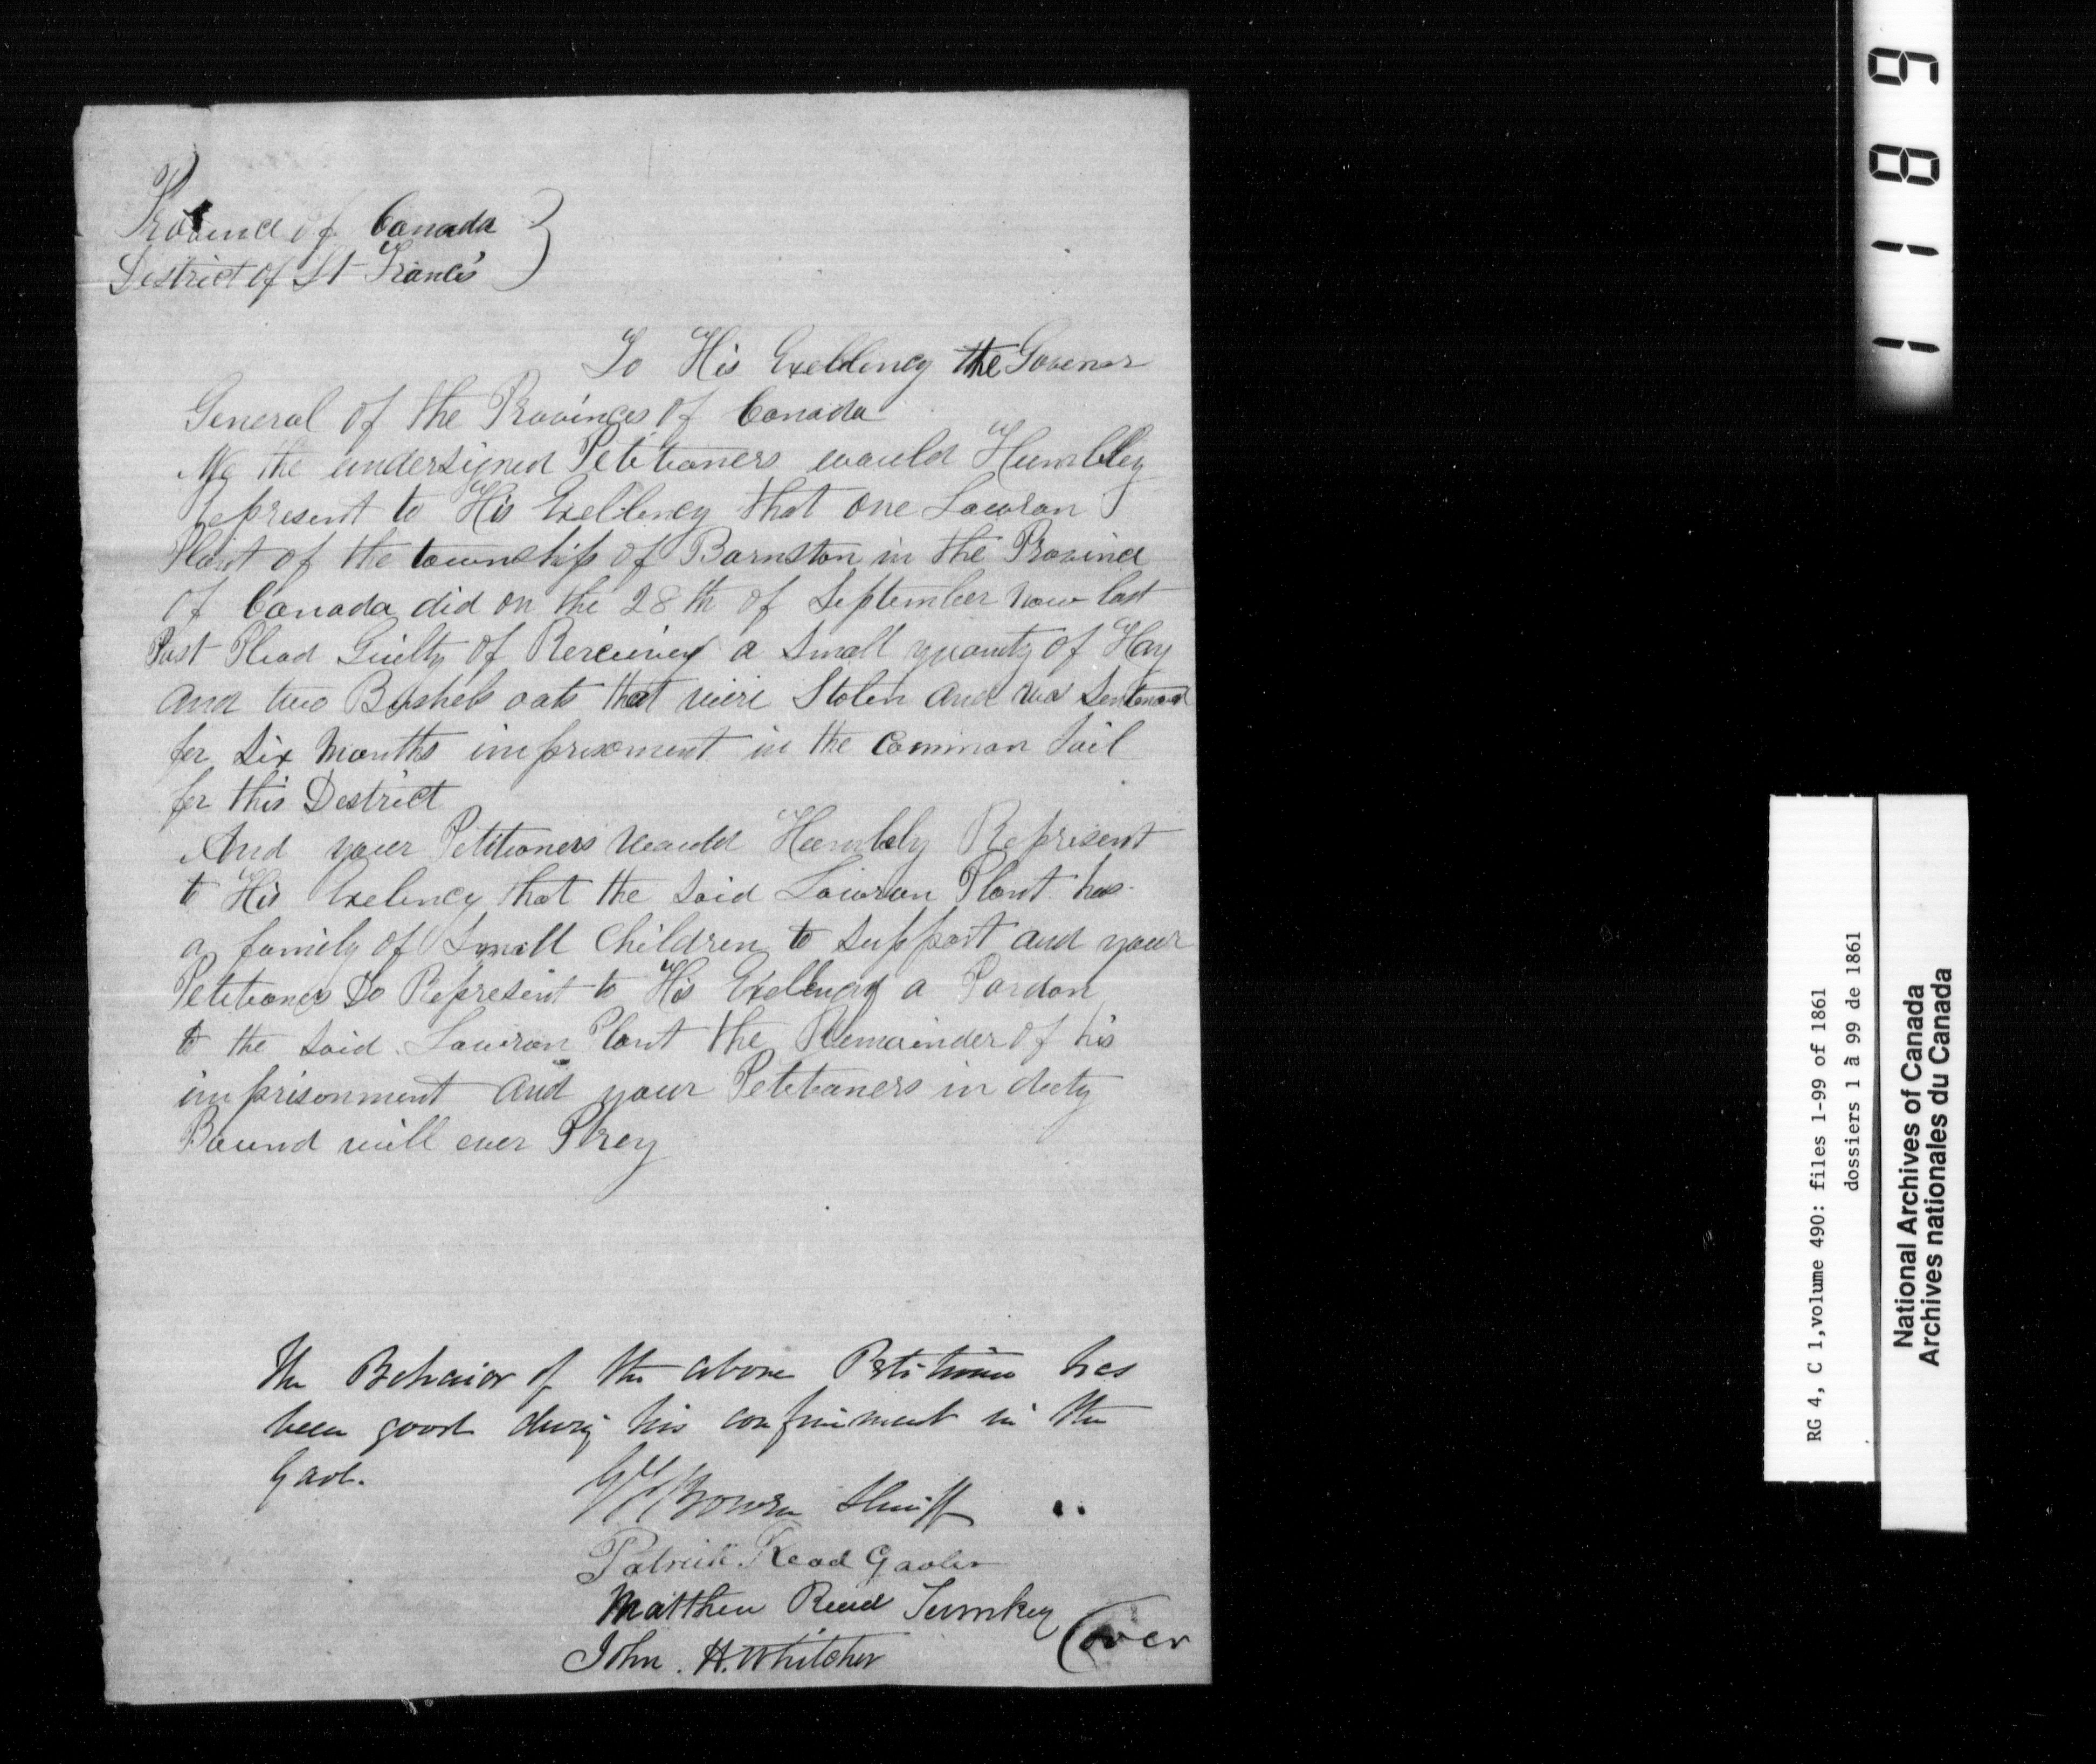 Province of Canada }
District of St Francis
To His Exellency the Govenor
General of the Provinces of Canada
We the undersigned Petitioners would Humbley
Represent to His Exellency that one Lawson
Plant of the township of Barnston in the Province
of Canada did on the 28th of September now last
Past Plead Guilty of Receiving a Small quanty of Hay
and two Bushels oats that were Stolen and was Sentenced
for Six Months imprisoment in the Common Jail
for this District
And your Petitioners would Humbly Represent
to His Exelency that the Said Lawson Plant has
a family of Small Children to Support and your
Petitioners Do Represent to His Exellency a Pardon
to the Said Lawson Plant the Remainder of his
imprisonment and your Petitioners in duty
Bound will ever Prey
The Behaior of the above Petitioner has
been good during his confinement in the
Gaol.
Bowen Sheriff
Patrick Read Gaoler
Matthew Read Turnkey
(over
John. H. Whitcher
1189
RG 4, C 1,volume 490: files 1-99 of 1861
dossiers 1 à 99 de 1861
National Archives of Canada
Archives nationales du Canada